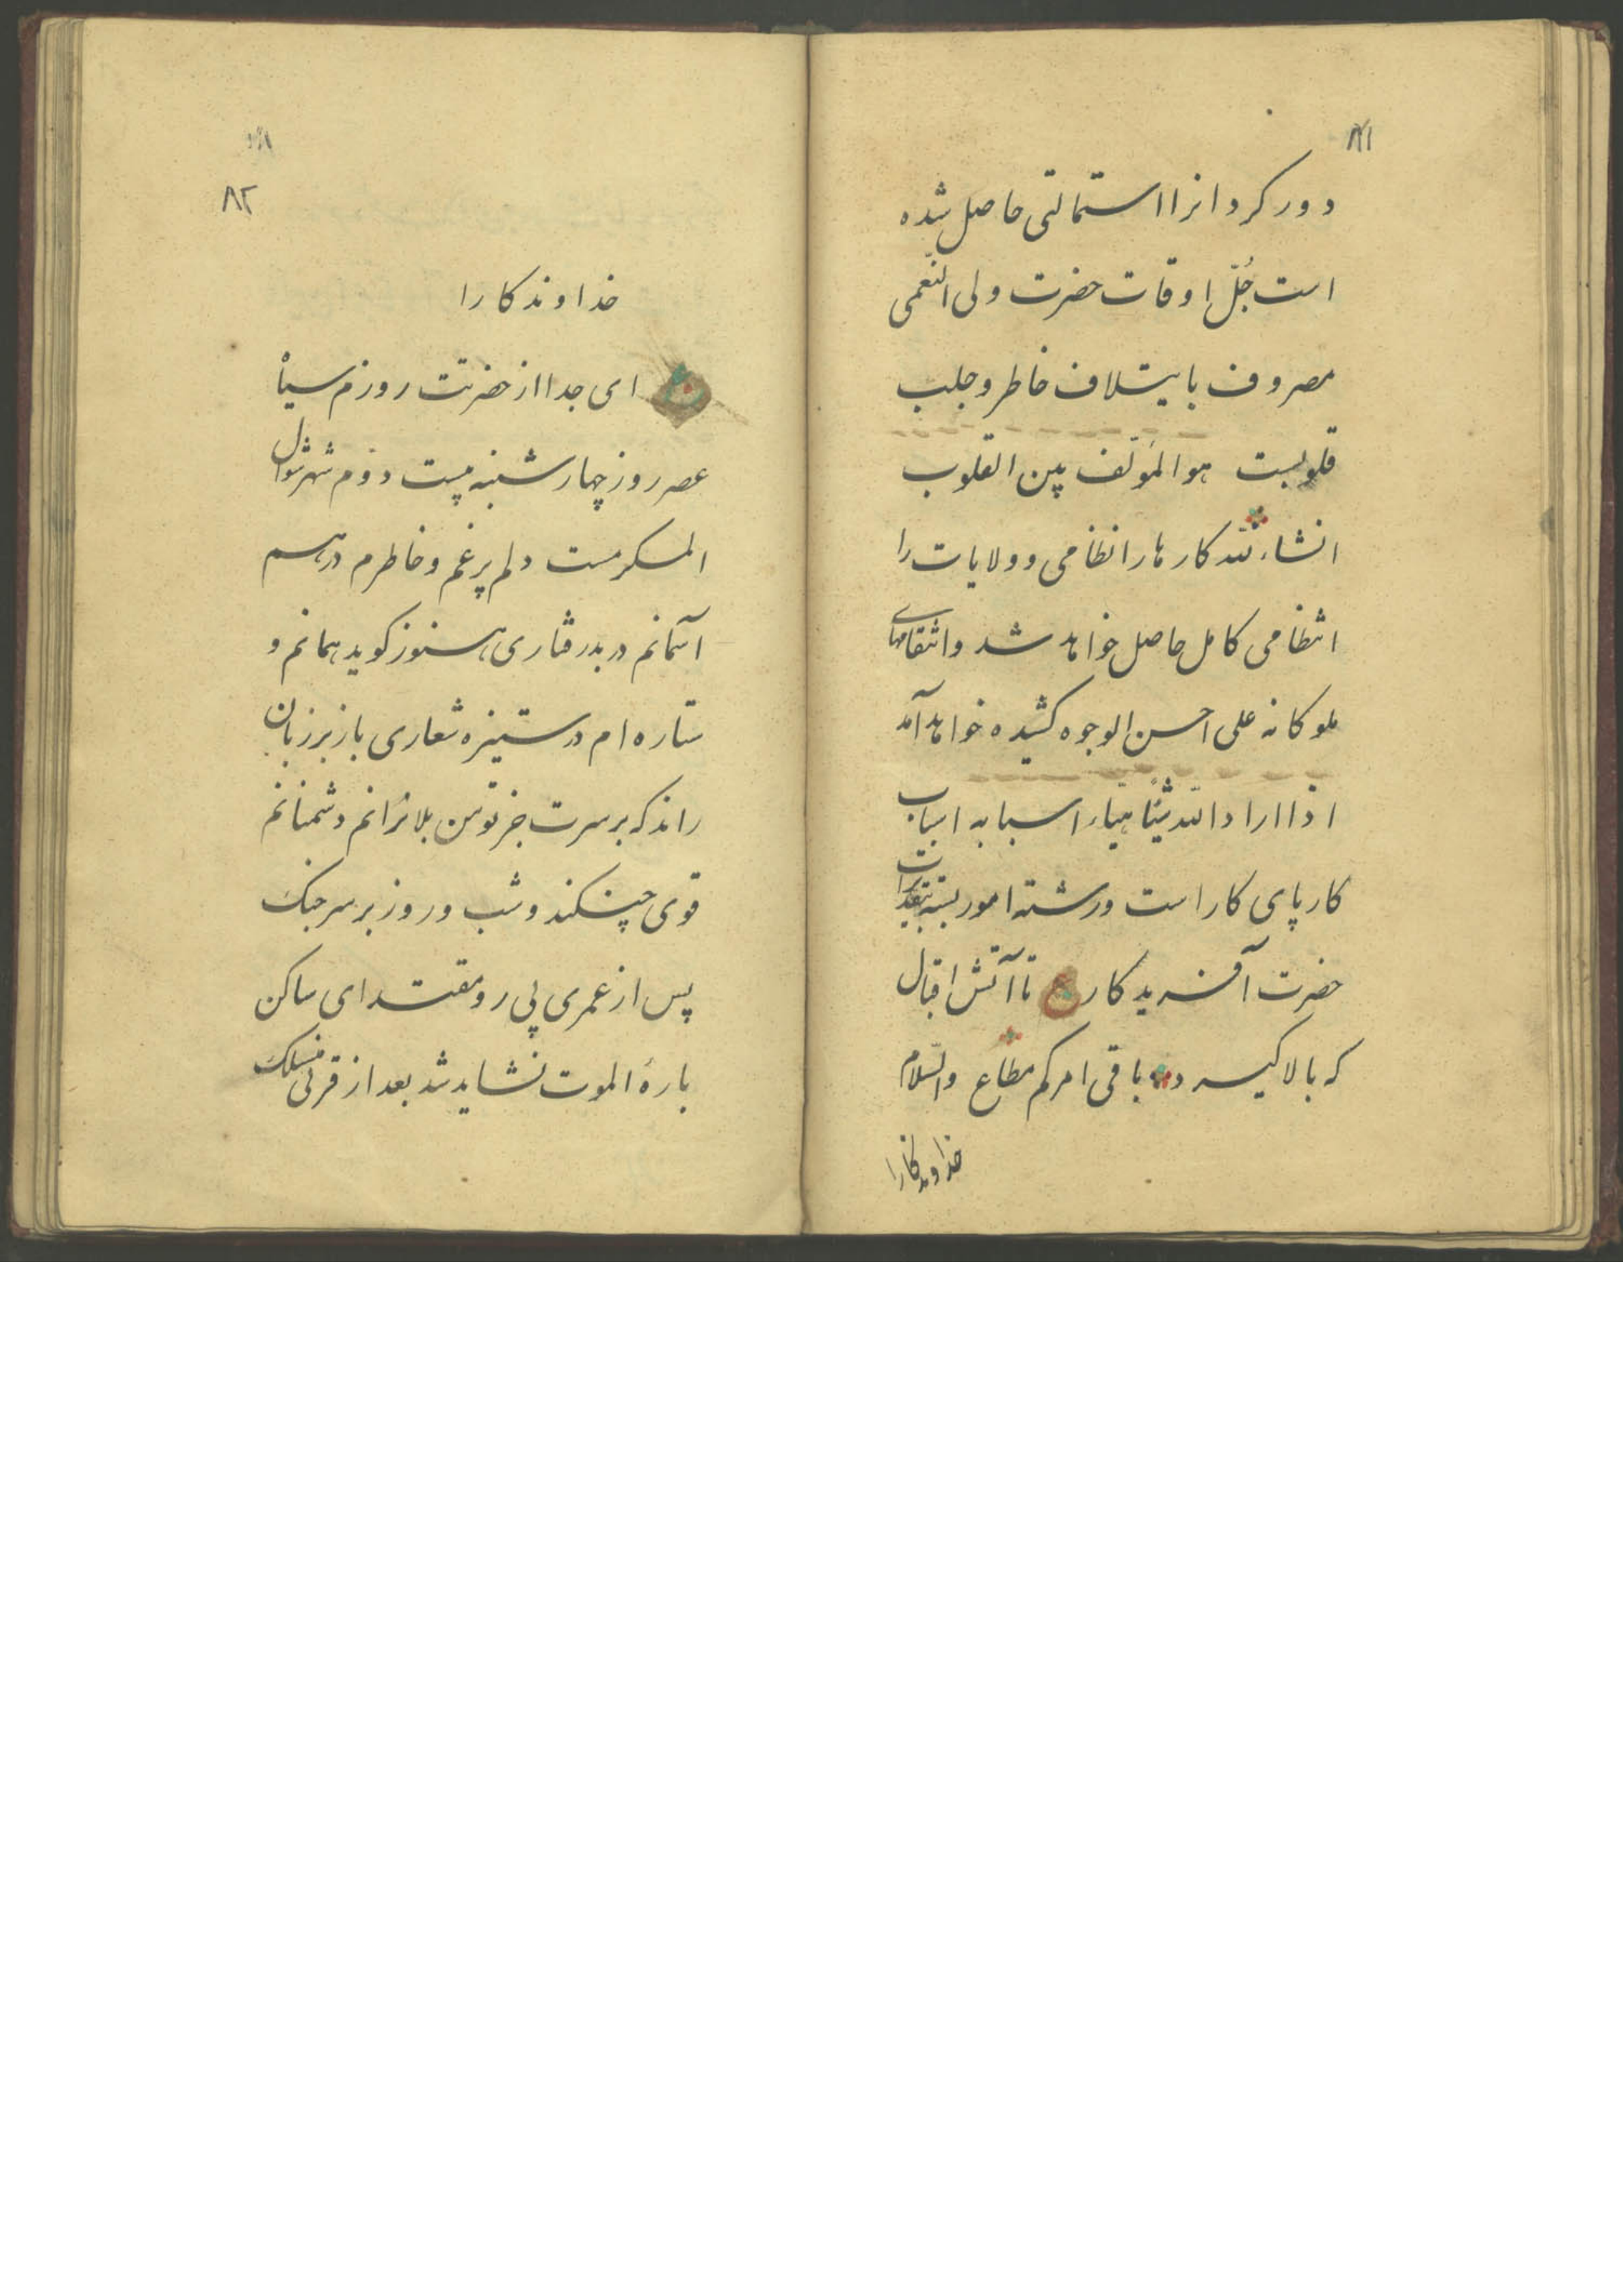 ۸۱
دور کردانرا استمالتی حاصل شده
است جُلّ اوقات حضرت ولی النّعمی
مصروف بایتلاف خاطر و جلب
قلوبست هو المؤلف بین القلوب
انشاءلله کارها را نظامی و ولایات را
انتظامی کامل حاصل خواهد شد و انتقامهای
ملوکانه علی احسن الوجوه کشیده خواهد آمد
اذا اراد الله شیئاً هیّاء اسبابه اسباب
کار پای کار است و رشته امور بسته بتقدیرات
حضرت آفریدکار ع تا آتش اقبال
که بالا کیرد باقی امرکم مطاع والسّلام
خداوندکارا
۸۲
خداوندکارا
ع ای جدا از حضرتت روزم سیاه
عصر روز چهارشنبه بیست دوم شهر شوال
المکرمست دلم پر غم و خاطرم درهم
آسمانم در بدرفتاری هنوز کوید همانم و
ستاره ام در ستیزه شعاری باز بر زبان
راند که بر سرت جز توسن بلا نرانم دشمنانم
قوی چنکند و شب و روز بر سر جنک
پس از عمری پی رو مقتدای ساکن
بارهٔ الموت نشاید شد بعد از قرنی منسلک